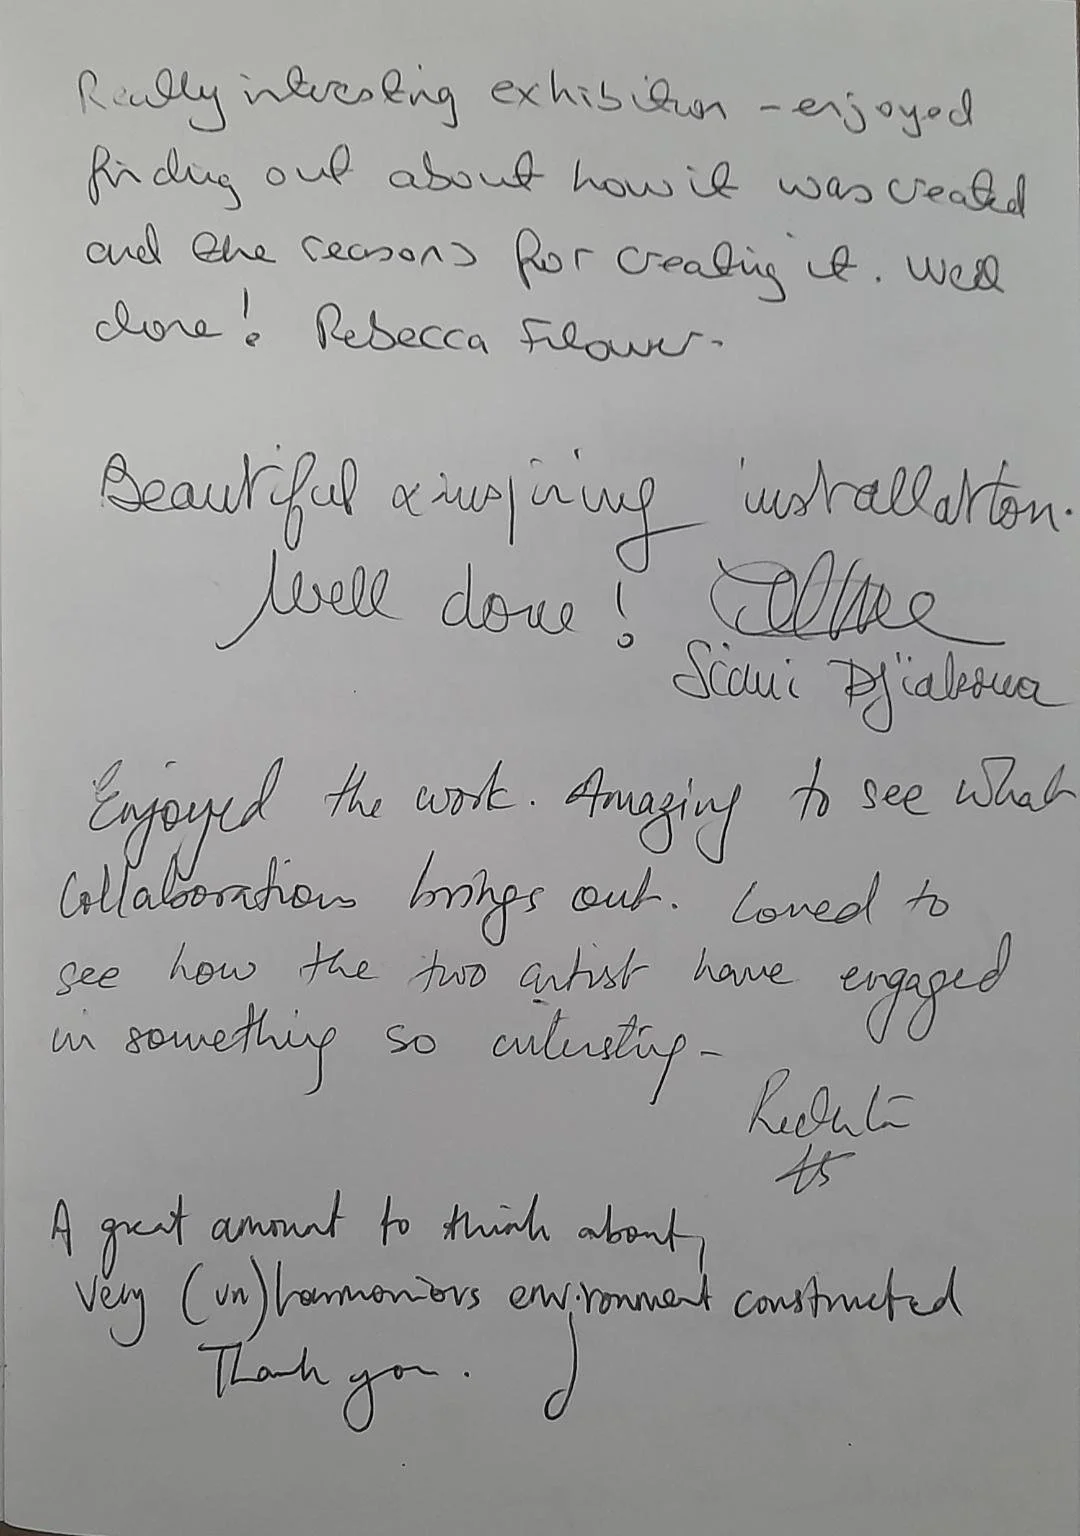 Really interesting exhibition - enjoyed
finding out about how it was created
and the reasons for creating it. Well
done! Rebecca
Beautiful & inspiring installation.
Well done!
Enjoyed the work. Amazing to see what
Collaborations brings out. Loved to
see how the two artist have engaged
in something so intersting -
A great amount to think about,
very (un)harmonious environment constructed
Thank you.